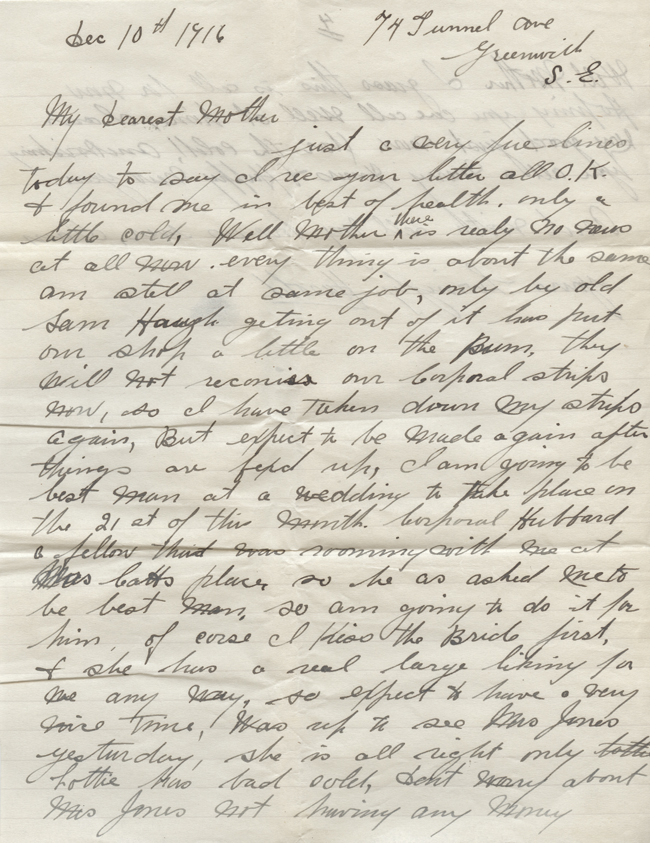 Dec 10th 1916
74 Tunnel ave
Greenwich
S. E.
My Dearest Mother
just a very fue lines
today to say I rec your letter all O.K.
& found me in best of health. only a
little cold, Well Mother there is realy no news
at all now. every thing is about the same
am still at same job, only by old
Sam Haugh geting out of it has put
our shop a little on the Bum, they
will not reconiss our Corporal strips
now, so I have taken down my strips
again, But expect to be made again after
things are fixd up, I am going to be
best man at a wedding to take place on
the 21st of this Month. Corporal Hubbard
a fellow that was rooming with me at
Mrs Catts place, so he as asked me to
be best man, so am going to do it for
him, of corse I Kiss the Bride first,
& she has a real large liking for
me any way, so expect to have a very
nice time, Was up to see Mrs Jones
yesturday, she is all right only
Lottie has bad cold, Dont wary about
Mrs Jones not having any Money